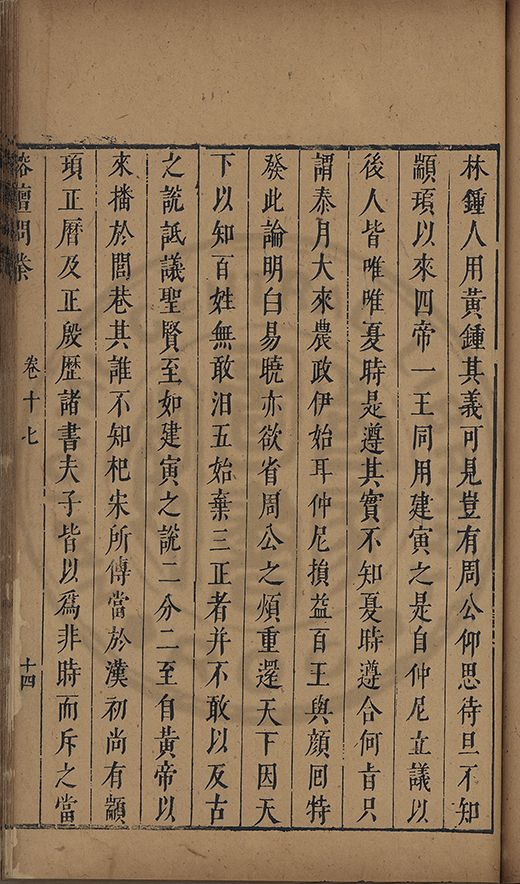 林鍾人用黃鍾其義可見豈有周公仰思待旦不知
顓頊以來四帝一王同用建寅之是自仲尼立議以
後人皆唯唯夏時是遵其實不知夏時遵合何㫖只
謂泰月大來農政伊始耳仲尼損益百王與顏囘特
發此論明白易曉亦欲省周公之煩重還天下因天
下以知百姓無敢汨五始棄三正者并不敢以反古
之說詆議聖賢至如建寅之說二分二至自黃帝以
來播於閭巷其誰不知杞宋所傳當於漢初尚有顓
頊正曆及正殷歷諸書夫子皆以爲非時而斥之當
榕壇問業
卷十七
十四